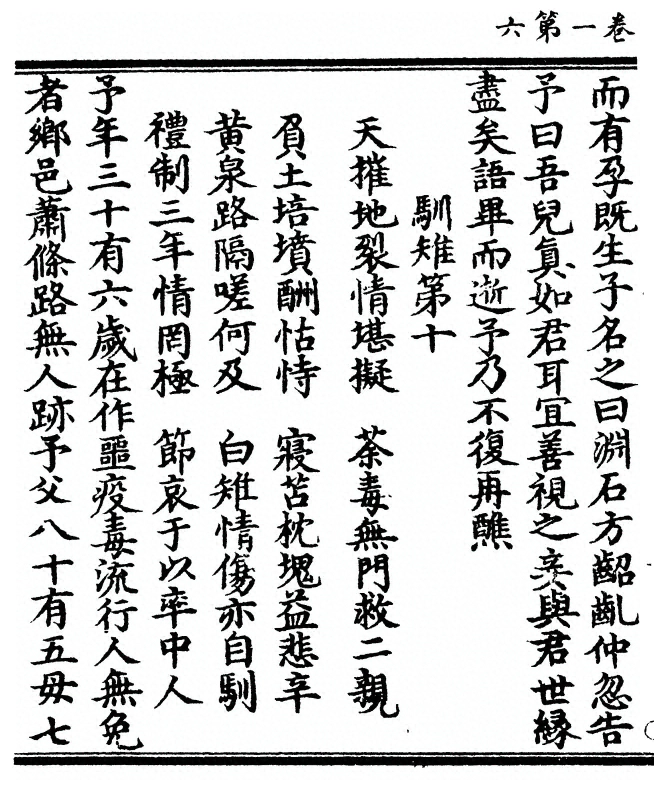 卷一第六
而有孕既生子名之曰淵石方齠齓仲忽告
予曰吾兒真如君耳宜善視之妾與君世緣
盡矣語畢而逝予乃不復再醮
馴雉第十
天摧地裂情堪擬 荼毒無門救二親
負土培墳酬怙恃 寢苫枕塊益悲辛
黃泉路隔嗟何及 白雉情傷亦自馴
禮制三年情罔極 節哀于以率中人
予年三十有六歲在作噩疫毒流行人無免
者鄉邑蕭條路無人跡予父八十有五母七